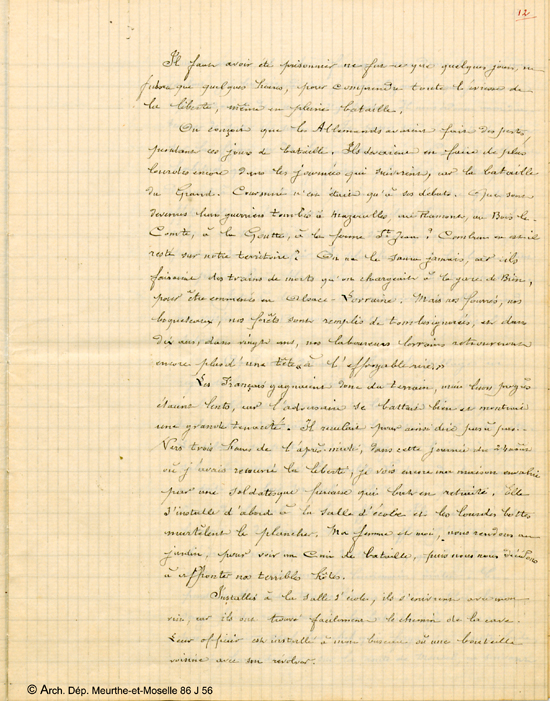 12
Il faut avoir été prisonnier ne fut-ce que quelques jours, ne
fut-ce que quelques heures, pour comprendre toute l'ivresse de
la liberté, même en pleine bataille.
On conçoit que les Allemands avaient fait des pertes,
pendant ces jours de bataille. Ils devaient en faire de plus
lourdes encore dans les journées qui suivirent, car la bataille
du Grand-Couronné n'en était qu'à ses débuts. Que sont
devenus leurs guerriers tombés à Mazerolles, au Bois le
Comte, à la Goutte, à la ferme St Jean ? Combien en est-il
resté sur notre territoire ? On ne le saura jamais, car ils
faisaient des trains de morts qu'on chargeait à la gare de
pour être emmenés en Alsace-Lorraine. Mais nos fourrés, nos
boqueteaux, nos forêts sont remplis de tombes ignorées, et dans
dix ans, dans vingt ans, nos laboureurs lorrains retrouveront
encore plus d'une tête à l'effroyable rire.
Les Français gagnaient donc du terrain, mais leurs progrès
étaient lents, car l'adversaire se battait bien et montrait
une grande ténacité. Il reculait pour ainsi dire pas à pas.
Vers trois heures de l'après-midi, dans cette journée du 25 août
où j'avais recouvré la liberté, je vois encore ma maison envahie
par une soldatesque furieuse qui bat en retraite. Elle
s'installe d'abord à la salle d'école et les lourdes bottes
martèlent le plancher. Ma femme et moi, nous rendons au
jardin, pour voir un coin de bataille, puis nous nous décidons
à affronter nos terribles hôtes.
Installés à la salle d'école, ils s'enivrent avec mon
vin, car ils ont trouvé facilement le chemin de la cave.
Leur officier est installé à mon bureau où une bouteille
voisine avec un revolver.
© Arch. Dép. Meurthe-et-Moselle 86 J 56